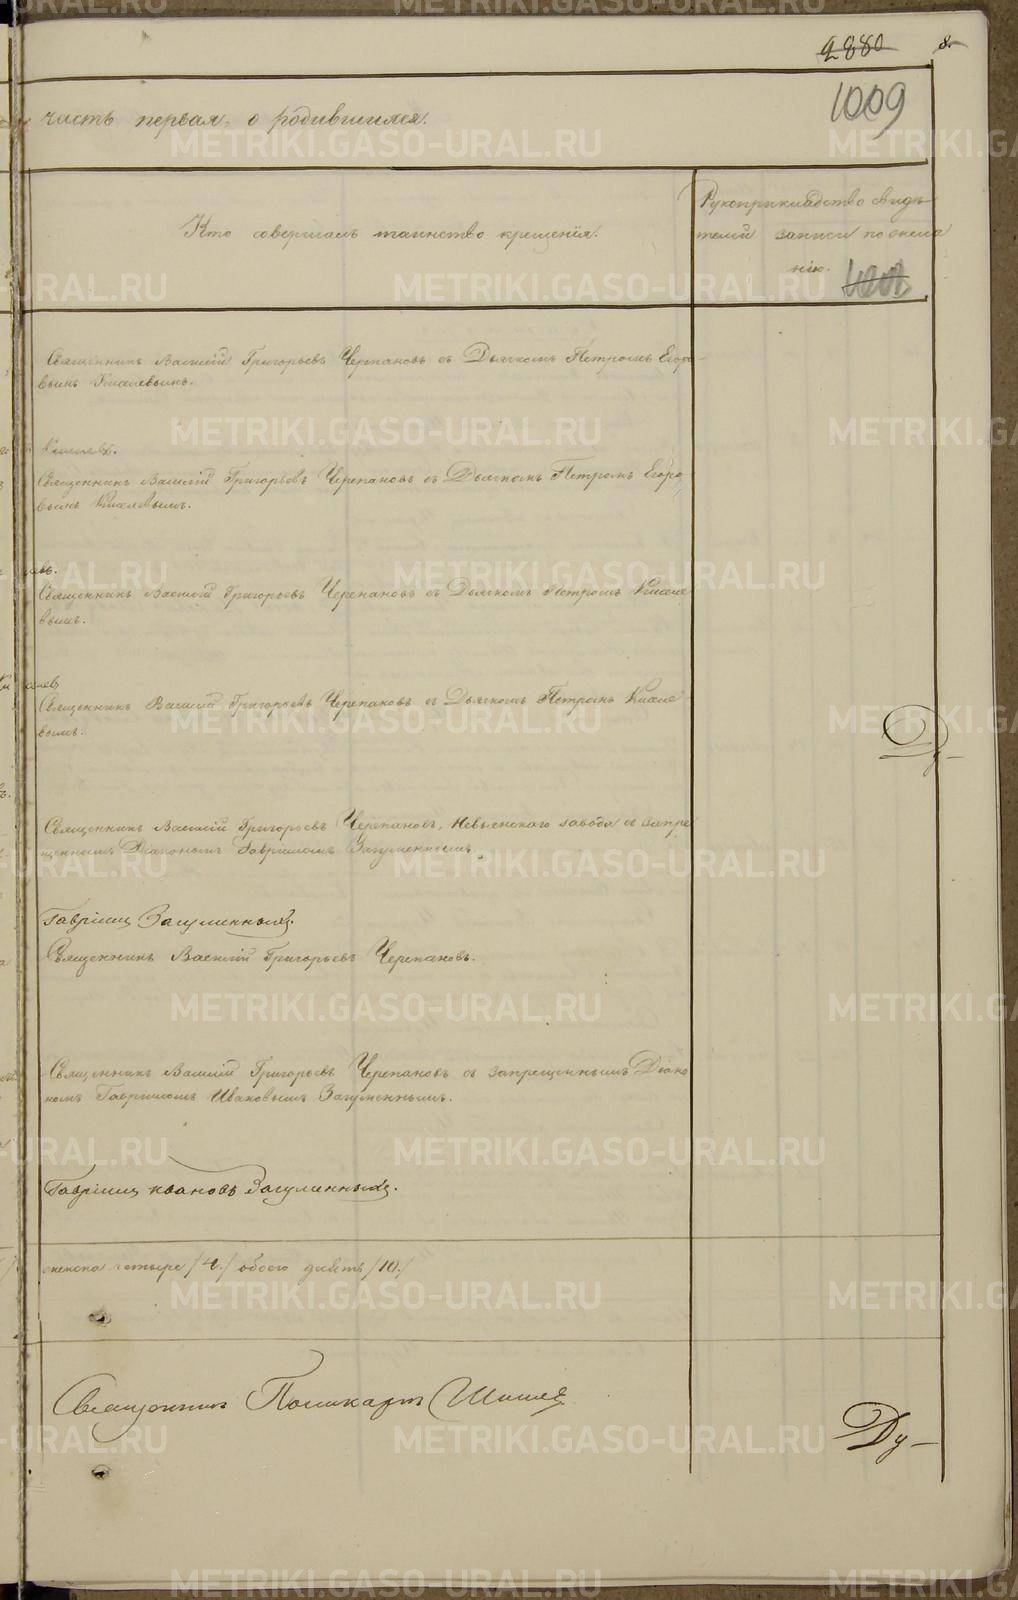 2880
8.
1009
часть первая, о родившихся.
Кто совершалъ таинство крещенія.
Рукоприкладство свидѣ-
телей записи по жела
нію.
Священникъ Василій Григорьевъ Черепановъ съ Дьячкомъ Петромъ Егоро-
вымъ Киселевымъ.
Киселевъ.
Священникъ Василій Григорьевъ Черепановъ съ Дьячкомъ Петромъ Егоро
вымъ Киселевымъ.
Священникъ Василій Григорьевъ Черепановъ съ Дьячкомъ Петромъ Киселе
вымъ.
Священникъ Василій Григорьевъ Черепановъ съ Дьячкомъ Петромъ Киселе
вымъ.
Священникъ Василій Григорьевъ Черепановъ, Невьянскаго завода съ запре
щеннымъ Діакономъ Гавріиломъ Загуменнымъ.
Гавріилъ Загуменныхъ.
Священникъ Василій Григорьевъ Черепановъ.
Священникъ Василій Григорьевъ Черепановъ съ запрещеннымъ Діако
номъ Гавріиломъ Ивановымъ Загуменнымъ.
Гавріилъ Ивановъ Загуменныхъ.
женска четыре /4./ обоего /10./
Священникъ Поликарпъ
METRIKI.GASO-URAL.RU